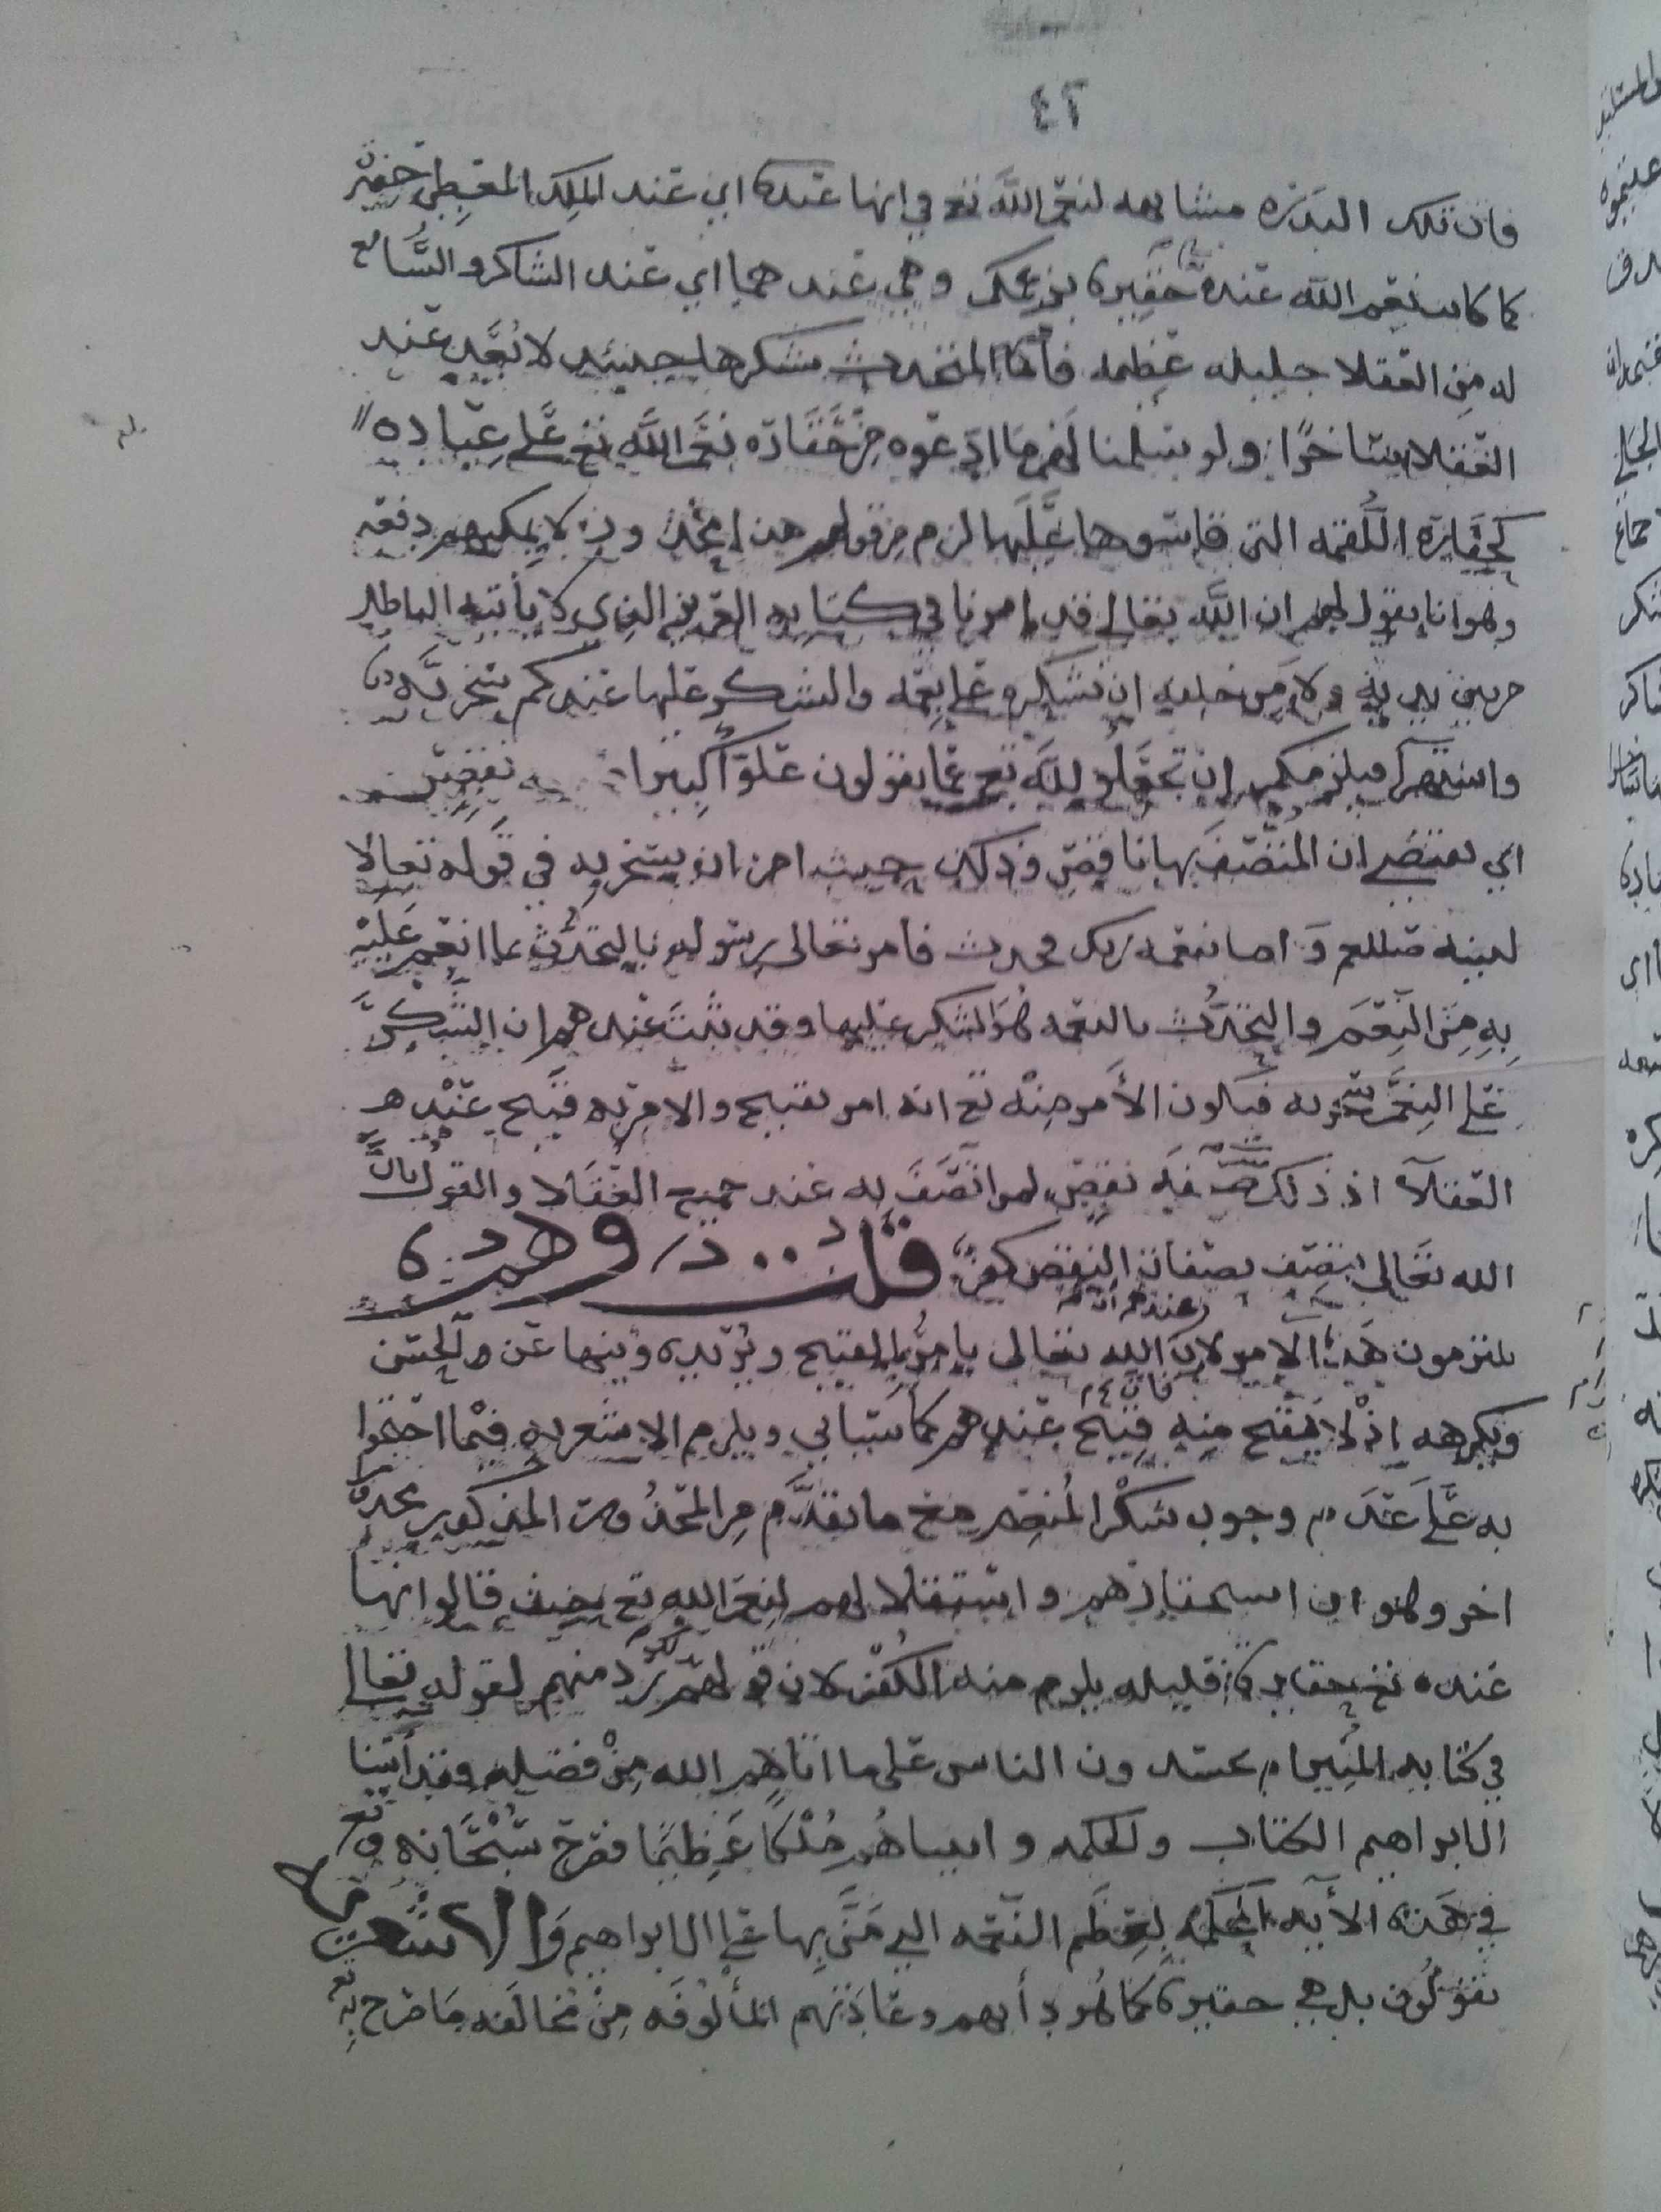 ٤٢
فان تلك البدره مشابهه لنعم الله تع في انها عنده اي عند الملك المعطي حقيره
كما كانت نعم الله عنده حقيره بزعمكم وهي عندهما اي عند الشاكر والسامع
له من العقلا جليله عظيمه فأما المتحدث بشكرها حينئذ لا يعد عند
العقلا ساخرًا ولو سلمنا لهم ما ادعوه من حقارة نعم الله تع على عباده
كحقارة اللقمه التي قاسوها عليها لزم من قولهم هذا محذور لا يمكنهم دفعه
وهو انا نقول لهم ان الله تعالى قد امرنا في كتابه العزيز الذي لا يأتيه الباطل
من بين يديه ولا من خلفه ان نشكره على نعمه والشكر عليها عندكم سخريه
واستهزا فيلزمكم ان تجعلوا لله تع عما يقولون علوًا كبيرا نقيص
اي يقتضي ان المتصف بها ناقص وذلك حيث امر ان يسخر به في قوله تعالى
لنبيه صللعم وَاما بنعمة ربك فحدث فأمر تعالى رسوله بالتحدث بما انعم عليه
بِهِ مِنَ النِعَم والتحدُّث بالنعمه هُوَ الشكر عليها وقد ثبت عندهم ان الشكر
على النعم سخريه فيكون الأمر منه تع انه امر بقبيح والامر به قبيح عند
العقلآ اذ ذلك صفة نقص لمن اتصف به عند جميع العقلا والقول بان
الله تعالى يتصف بصفات النقص كفر قلت وهم
يلتزمون هذا الامر لان عندهم ان الله تعالى يأمر بالقبيح ويريده وينها عن الحسن
ويكرهه اذ لا يقبح منه قبيح عندهم كما سيأتي ويلزم الاشعريه فيما احتجوا
به على عدم وجوب شكر المنعم مع ما تقدم من المحذورات المذكوره محذور
اخر وهو ان استحقارهم واستقلالهم لنعم الله تع بحيث قالوا انها
عنده تع حقيرة قليله يلزم منه الكفر لان قولهم رد منهم لقوله تعالى
في كتابه المبين ام يحسدون الناس على ما اتاهم الله من فضله فقد أتينا
ال ابراهيم الكتاب والحكمه واتيناهُم مُلْكًا عَظِيمًا فصرح سُبْحَانه وتع
في هذه الأيه المحكمه بعظم النعمه التي مَنَّ بِها على ال ابراهيم وَالاشعريه
يقولون بل هي حقيرة كما هُو دأبهم وعادتهم المألوفه مِنْ مخالفه مَا صرح به تع